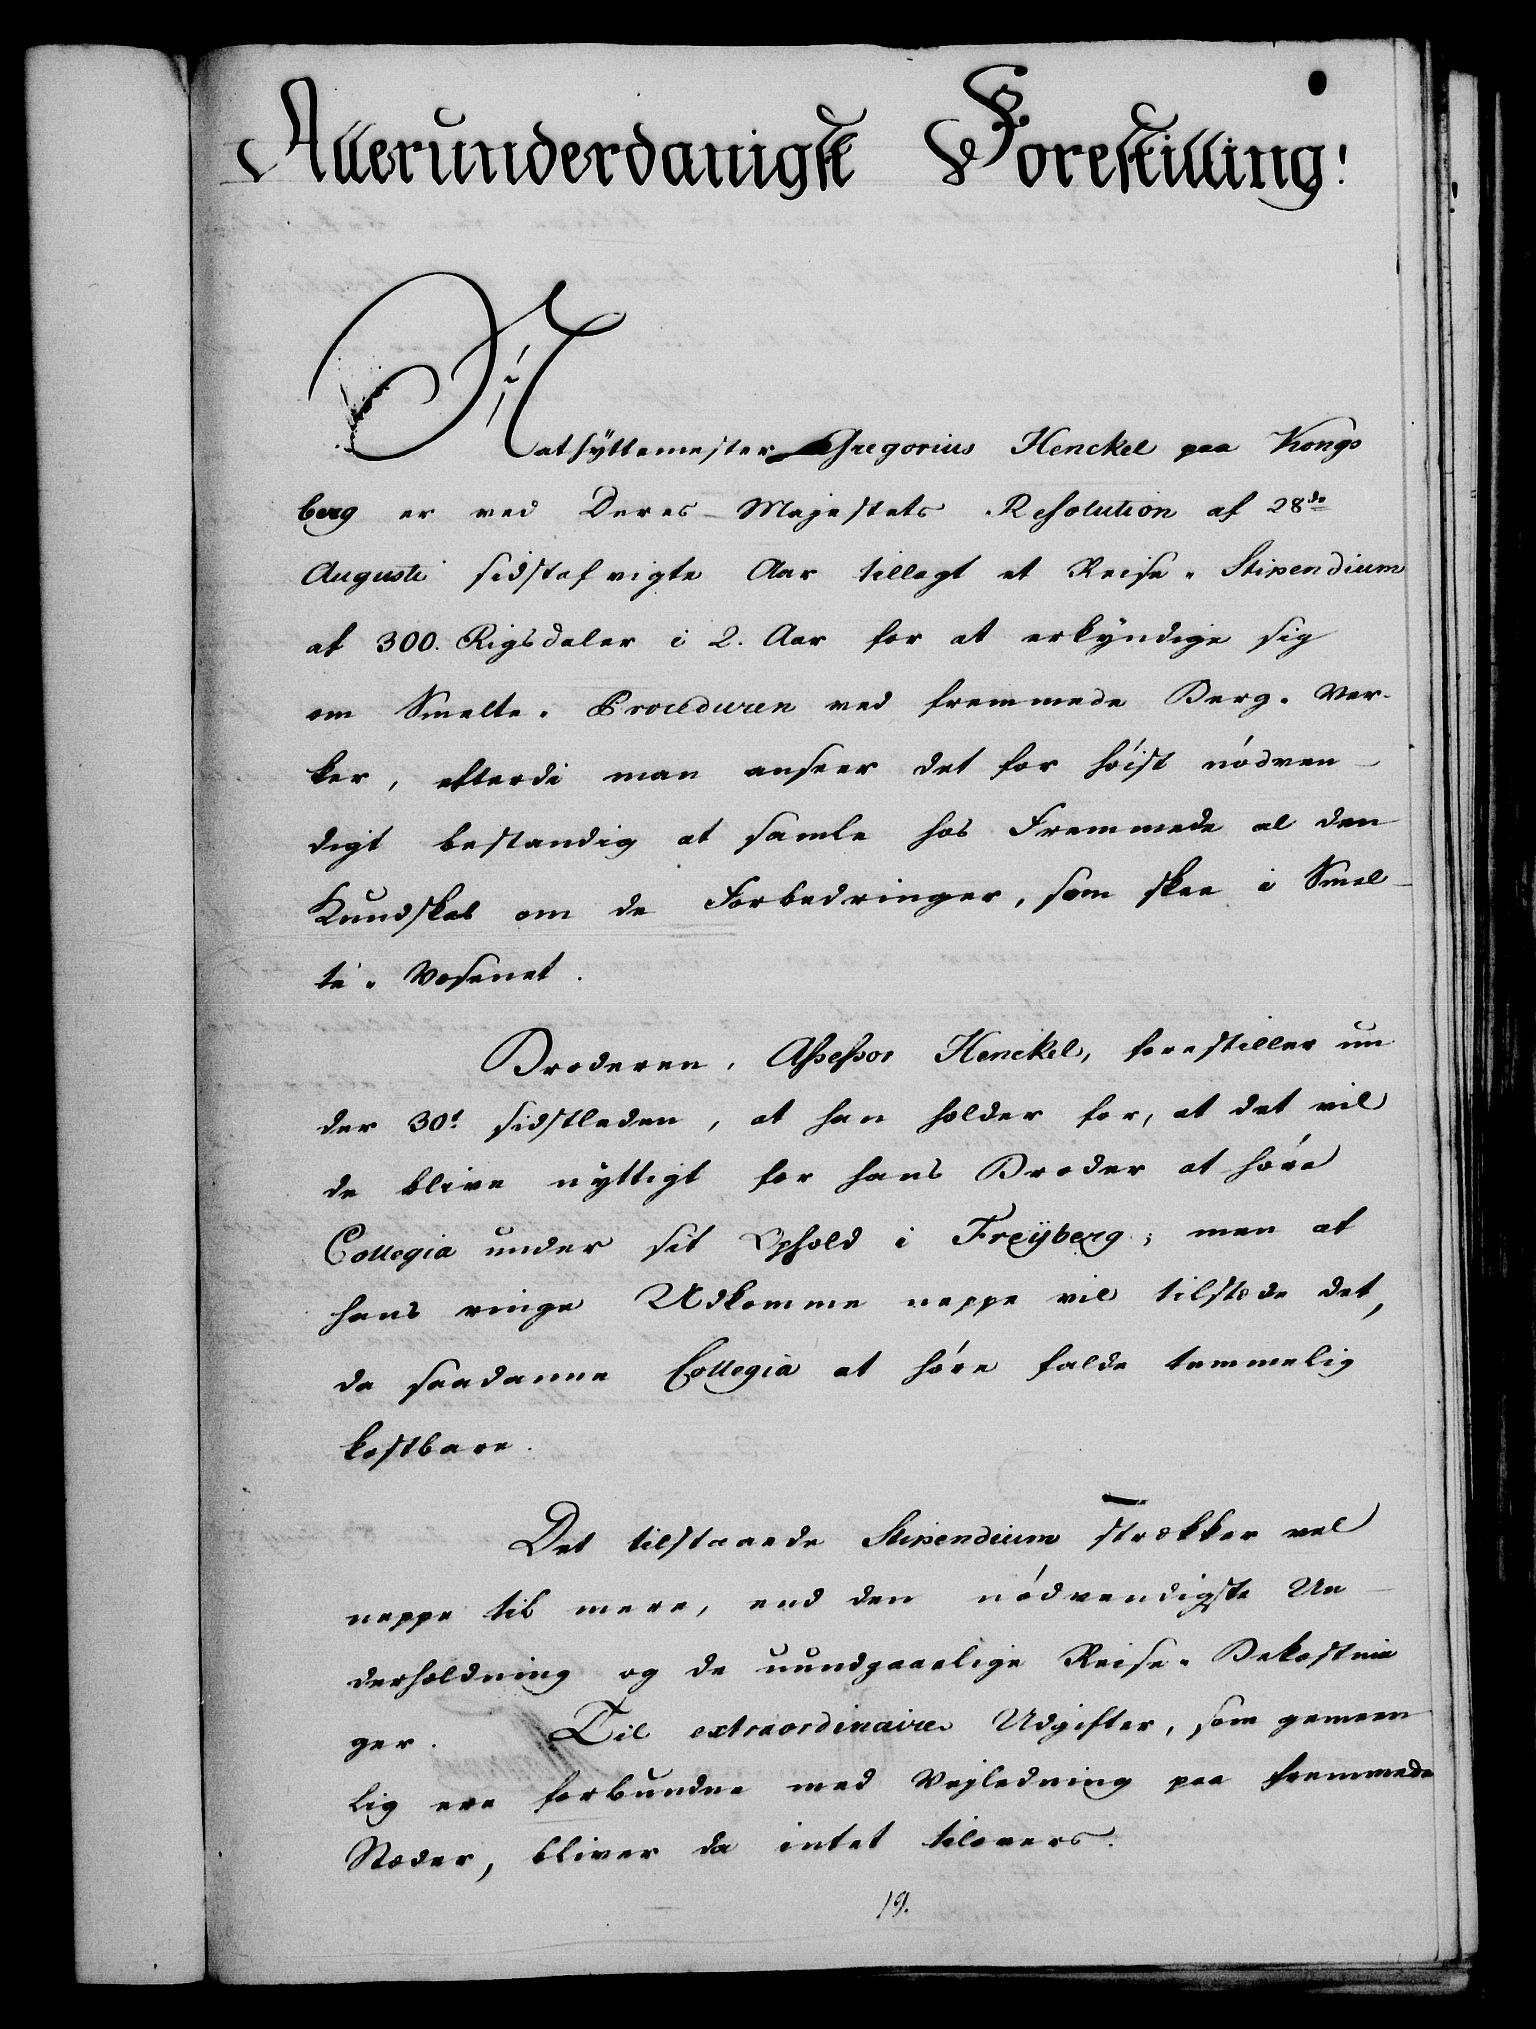 Allerunderdanigst Forestilling!
Nathyttemester Gregorius Henckel paa Kongs
berg er ved Deres Majestæts Resolution af 28de
Augusti sidstafvigte Aar tillagt et Reise-Stipendium
af 300. Rigsdaler i 2. Aar for at erkyndige sig
om Smelte-Proceduren ved fremmede Berg-Vær-
ker, efterdi man anseer det for høist nødven-
digt bestandig at samle hos Fremmede al den
Kundskab om de Forbedringer, som skee i Smel-
te-Væsenet.
Broderen, Assessor Henckel, forestiller un
der 30t sidstleden, at han holder for, at det vil
de blive nyttigt for hans Broder at høre
Collegia under sit Ophold i Freyberg; men at
hans ringe Udkomme neppe vil tilstæde det,
da saadanne Collegia at høre falde temmelig
kostbare.
Det tilstaaede Stipendium strækker vel
neppe til mere, end den nødvendigste Un-
derholdning og de uundgaaelige Reise-Bekostnin
ger. Til extraordinaire Udgifter, som gemeen
lig ere forbundne med Vejledning paa fremmede
Stæder, bliver da intet tilovers.
19.